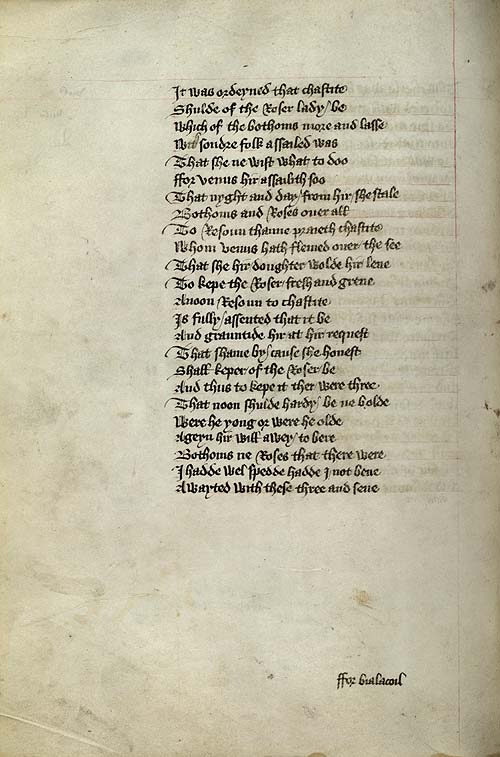 It was ordeyned that chastite
Shulde of the Roser lady be
Which of the bothoms more and lasse
With sondre folk assailed was
That she ne wist what to doo
ffor venus hir assailith soo
That nyght and day from hir she stale
Bothoms and Roses ouer all
To Resoun thanne praieth chastite
Whom venus hath flemed ouer the see
That she hir doughter wolde hir lene
To kepe the Roser fresh and grene
Anoon Resoun to chastite
Is fully assented that it be
And grauntide hir at hir request
That shame by cause she honest
Shall keper of the Roser be
And thus to kepe it ther were three
That noon shulde hardy be ne bolde
Were he yong or were he olde
Ageyn hir will awey to bere
Bothoms ne Roses that there were
I hadde wel spedde hadde I not bene
Awayted with these three and sene
ffor bialacoil